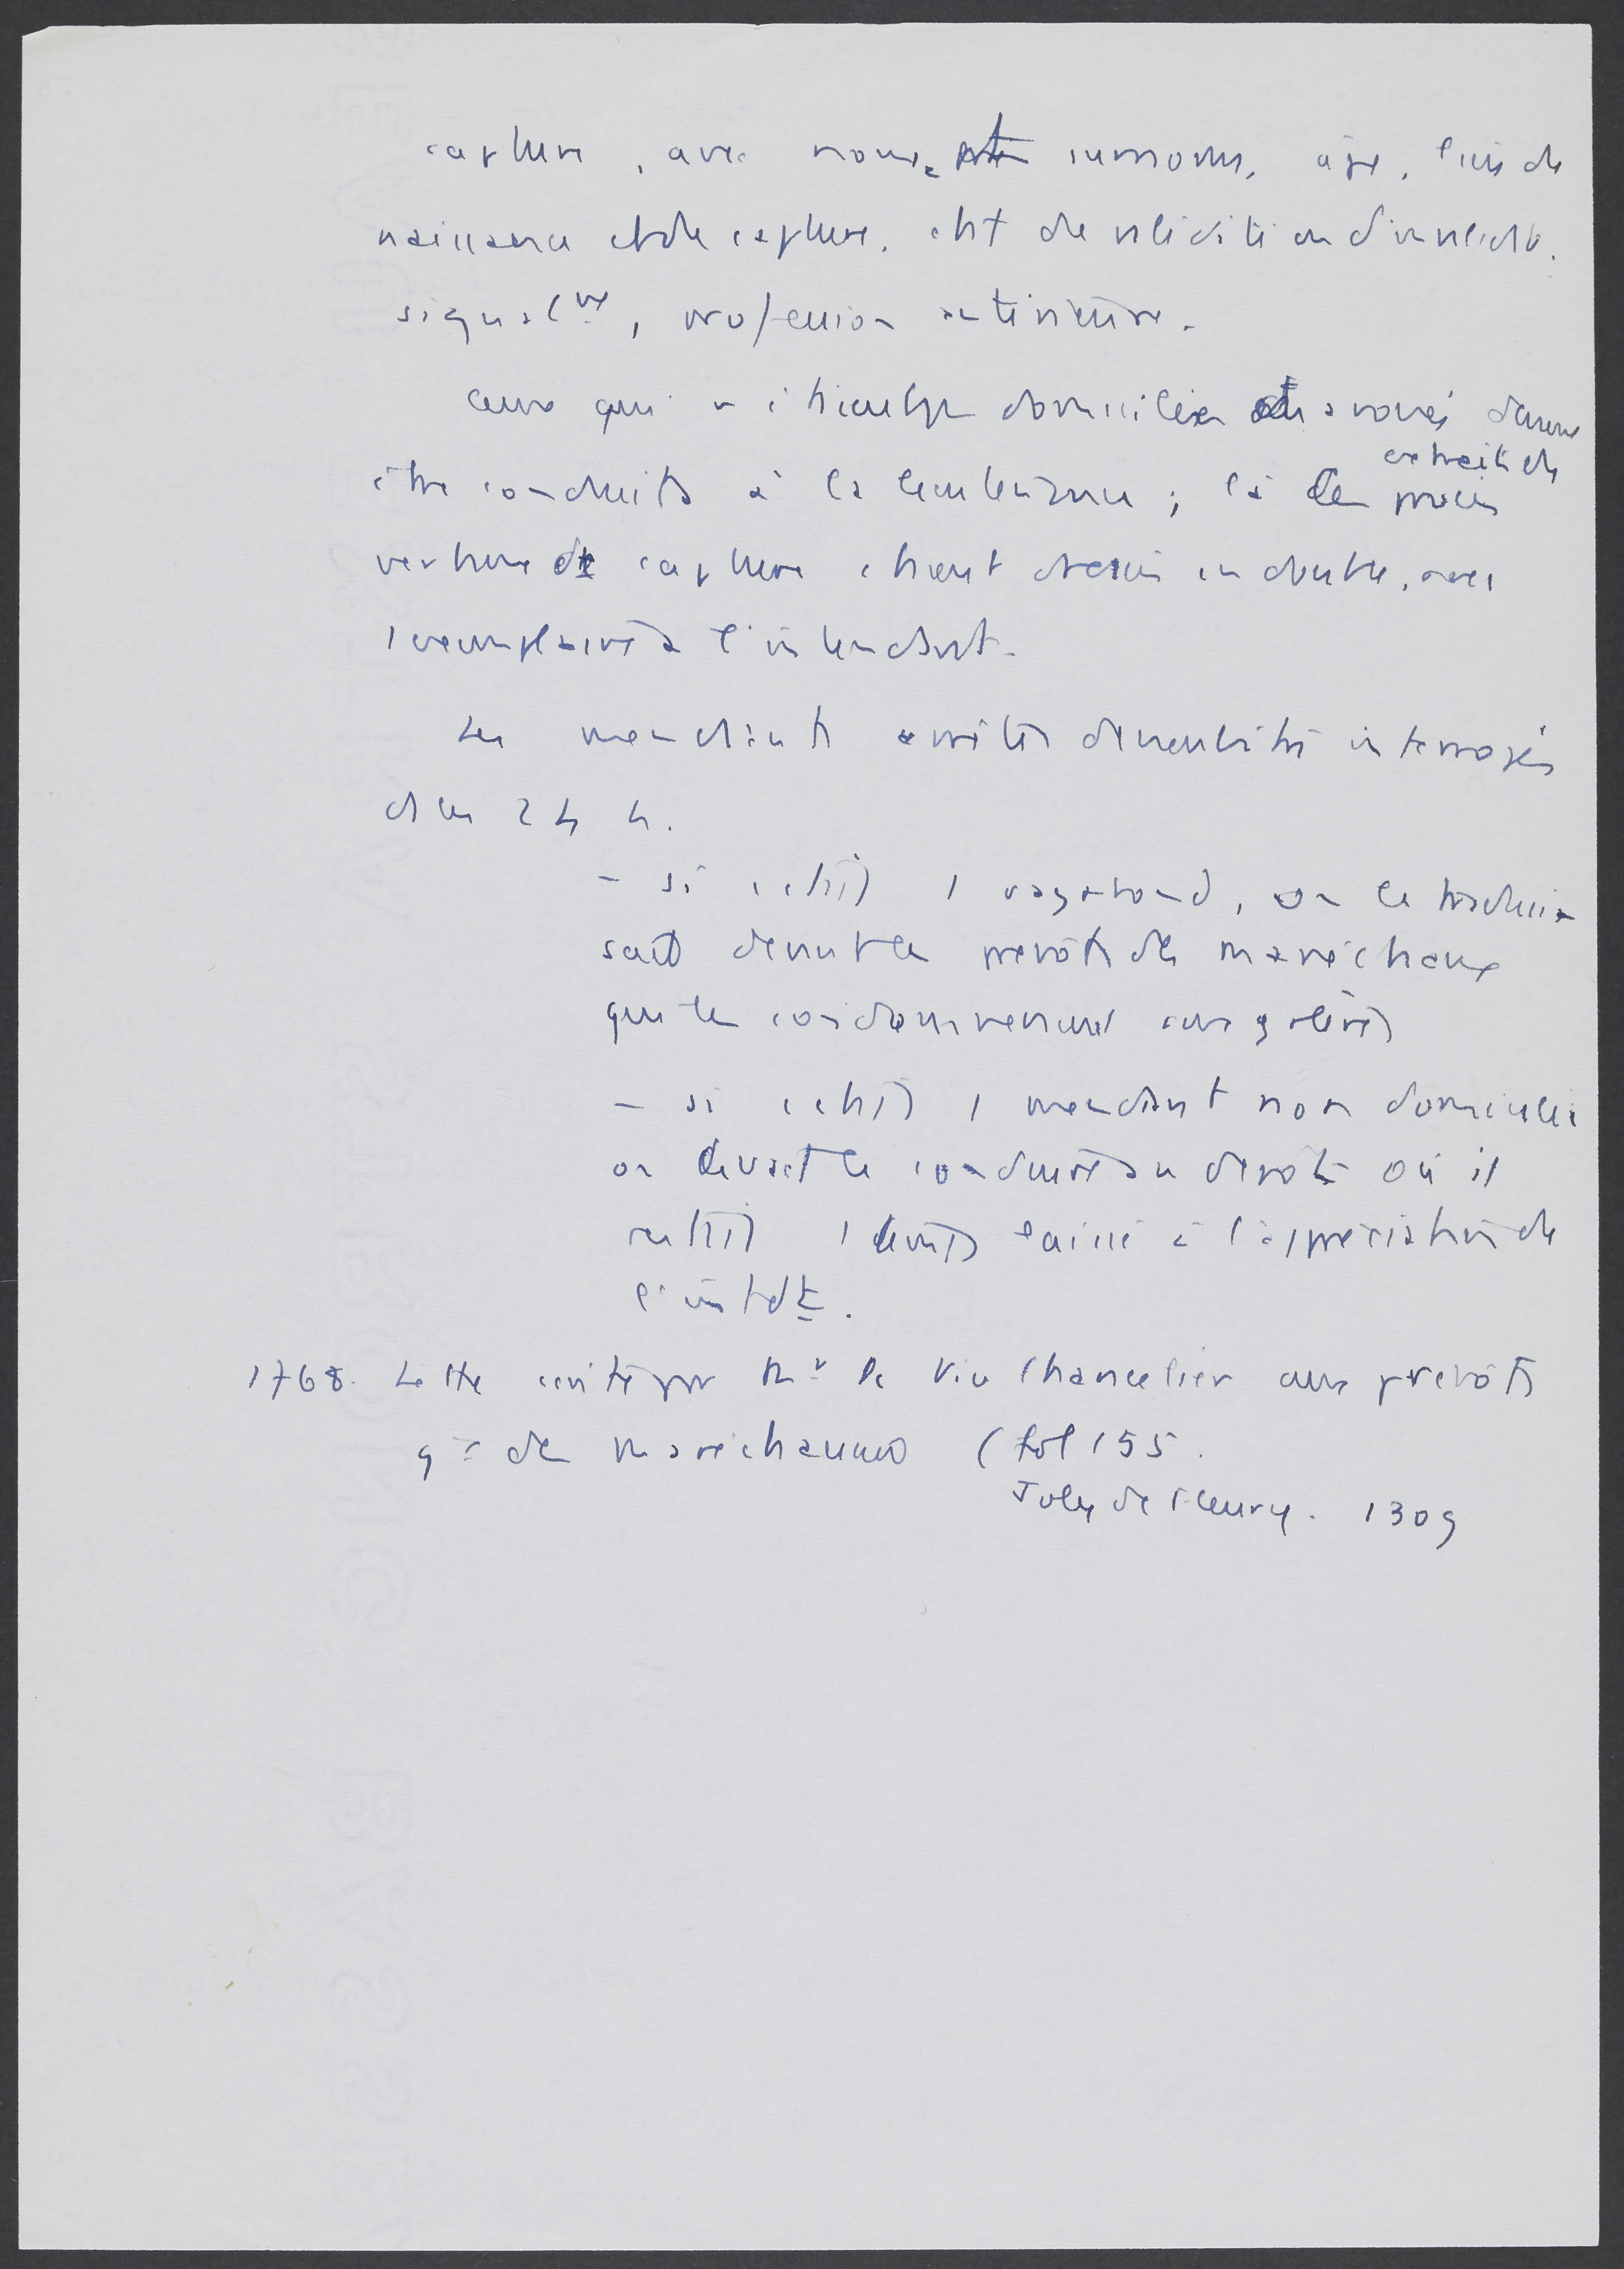 capture, avec noms, surnoms, âge, lieu de
naissance et de capture, état de validité ou d'invalidité,
signal^nt, profession antérieure.
Ceux qui n'étaient pas domiciliés et avoués devront
être conduits à la lieutenance ; là les procès
extrait de
verbaux de capture étaient dressés en double, avec
1 exemplaire à l'intendant.
Les mendiants arrêtés devaient être interrogés
dans 24 h.
- si c'était 1 vagabond, on le tradui-
sait devant les prévôts des maréchaux
qui les condamneraient aux galères
- si c'était 1 mendiant non domicilié
on devait le conduire au dépôt où il
restait 1 temps laissé à l'appréciation de
l'intdt.
1768. Lettre écrite par Mr le Vice Chancelier aux prévôts
gx des maréchaussées (fol 155.
Joly de Fleury. 1309